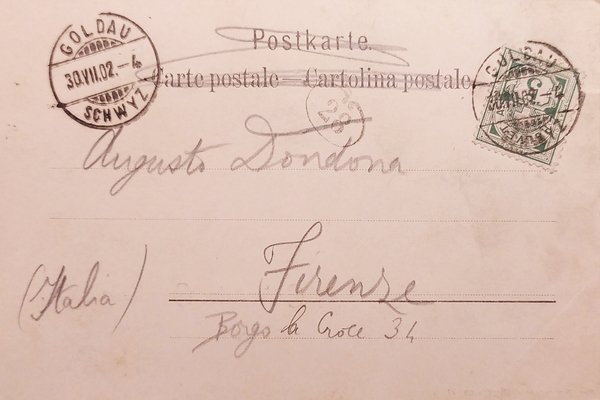 Postkarte.
Carte postale — Cartolina postale
GOLDAU
30.VII.02.-4
SCHWYZ
GOLDAU
Augusto Dondona
Firenze
(Italia)
Borgo la Croce 34